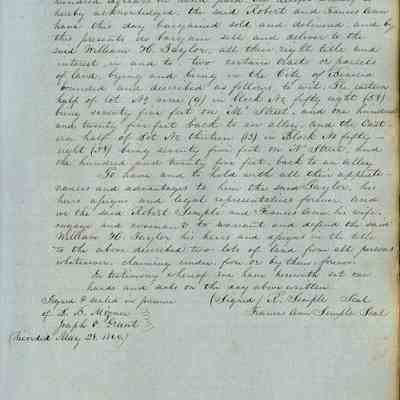 hundred dollars in hand paid
hereby acknowledged, the said Robert and Frances Ann
have this day bargained sold and delivered and by
these presents do bargain sell and deliver to the
said William H. Taylor, all their right title and
interest in and to two certain tracts or parcels
of land lying and being in the City of Benicia
bounded and described as follows, to wit, The eastern
half of lot No nine (9) in block No fifty eight (58)
being seventy five feet on M Street, and one hundred
and twenty five feet back to an alley, and the East-
ern half of lot No thirteen (13) in Block No fifty
eight (58) being seventy five feet on N Street, and
one hundred and twenty five feet, back to an alley
To have and to hold with all their appurte-
nances and advantages to him the said Taylor, his
heirs assigns and legal representatives forever, and
we the said Robert Semple and Frances Ann his wife,
engage and covenant to warrant and defend the said
William H. Taylor his heirs and assigns in the title
to the above described two lots of land from all persons
whatsoever, claiming under, for or by them forever.
In testimony whereof we have herewith set our
hands and seals on the day above written
Signed & sealed in presence (Signed) R. Semple Seal
of L. B. Mizner Frances Ann Semple Seal
Joseph P. Grant
(Recorded May 28.